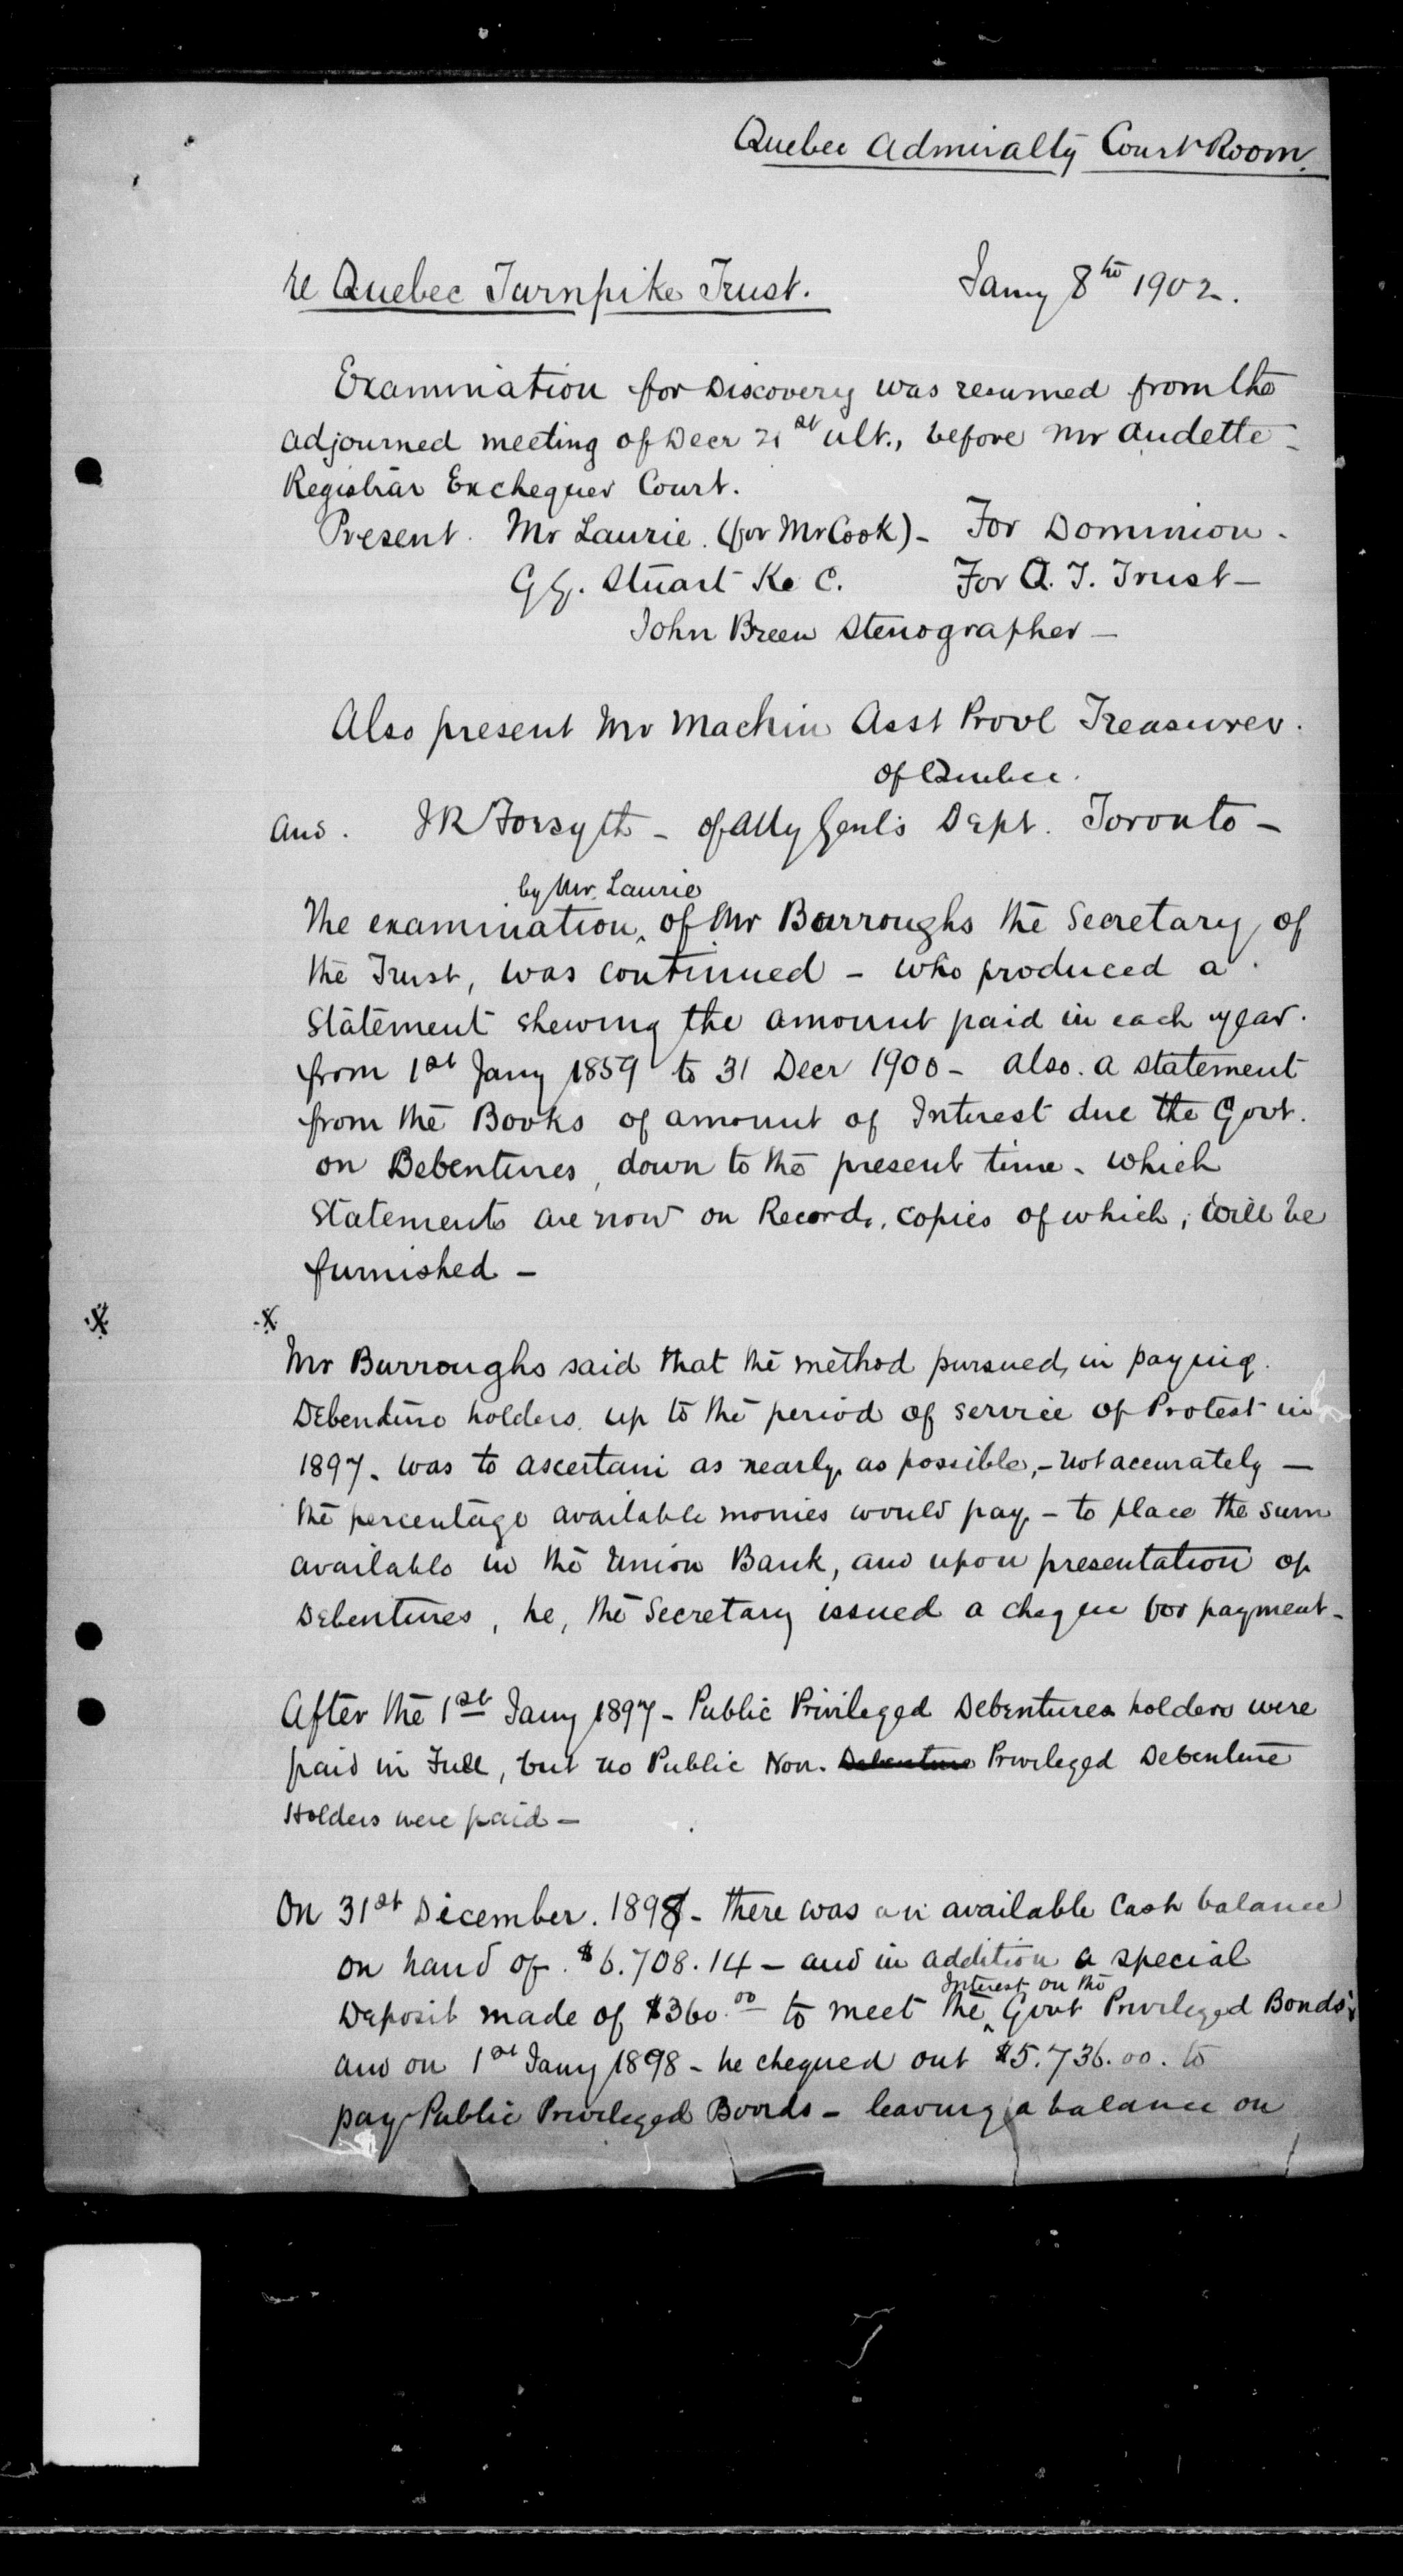 Quebec Admiralty Court Room.
re Quebec Turnpike Trust. Jany 8th 1902.
Examination for Discovery was resumed from the
adjourned meeting of Decr 21st ult., before Mr Audette -
Registrar Exchequer Court.
Present. Mr Laurie. (for Mr Cook) - For Dominion.
G.G. Stuart K.C. For Q. T. Trust -
John Breen Stenographer -
Also present Mr Machin Asst Provl Treasurer.
of Quebec.
and. JR Forsyth - of Atty Genl's Dept. Toronto -
by Mr. Laurie
The examination ‸ of Mr Burroughs the Secretary, of
the Trust, was continued - who produced a
Statement shewing the amount paid in each year.
from 1st Jany 1859 to 31 Decr 1900 - also. a statement
from the Books of amount of Interest due the Govt.
on Debentures, down to the present time. which
Statements are now on Record, copies of which, will be
furnished -
x x
Mr Burroughs said that the method pursued, in paying.
Debenture holders. up to the period of service of Protest in
1897. was to ascertain as nearly as possible, - not accurately -
the percentage available monies would pay, - to place the sum
available in the Union Bank, and upon presentation of
Debentures, he, the Secretary issued a cheque for payment -
After the 1st Jany 1897 - Public Privileged Debentures holders were
paid in Full, but no Public Non. Debenture Privileged Debenture
Holders were paid -
On 31st December. 1897 - there was an available Cash balance
on hand of. $6.708.14 - and in addition a special
Interest on the
Deposit made of $360.00 to meet the ‸ Govt Privileged Bonds;
and on 1st Jany 1898 - he chequed out $5.736.00. to
pay Public Privileged Bonds - leaving a balance on